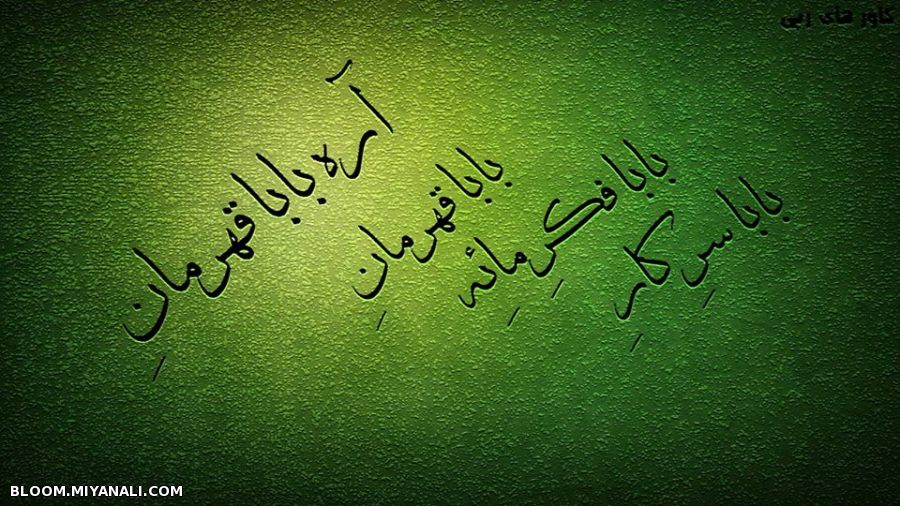 کاور های ربی
بابا سرِ کارِ
بابا فکرِ مائه
بابا قهرمانِ
آره بابا قهرمانِ
BLOOM.MIYANALI.COM